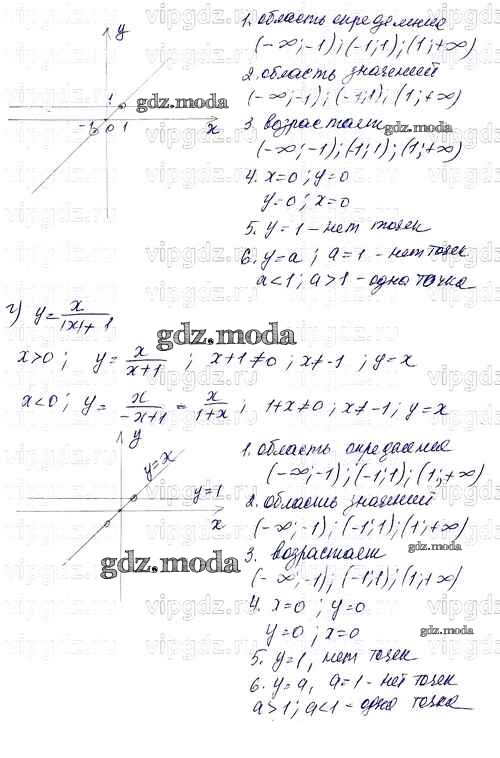 y
1. область определения
(-∞;-1); (-1;1); (1;+∞)
2. область значений
(-∞;-1); (-1;1); (1;+∞)
1
gdz.moda
-1 0 1
x
3. возрастает
gdz.moda
(-∞;-1); (1;1); (1;+∞)
4. x=0; y=0
y=0; x=0
5. y=1 - нет точек
6. y=a; a=1 - нет точек
a<1; a>1 - одна точка
г) y = x/|x|+1
gdz.moda
x>0; y = x/x+1; x+1≠0; x≠-1; y=x
x<0; y = x/-x+1 = x/1+x; 1+x≠0; x≠-1; y=x
y
y=x
y=1
x
gdz.moda
1. область определения
(-∞;-1); (-1;1); (1;+∞)
2. область значений
(-∞;-1); (-1;1); (1;+∞)
gdz.moda
3. возрастает
(-∞;-1); (-1;1); (1;+∞)
4. x=0; y=0
y=0; x=0
gdz.moda
5. y=1, нет точек
6. y=a, a=1 - нет точек
a>1; a<1 - одна точка